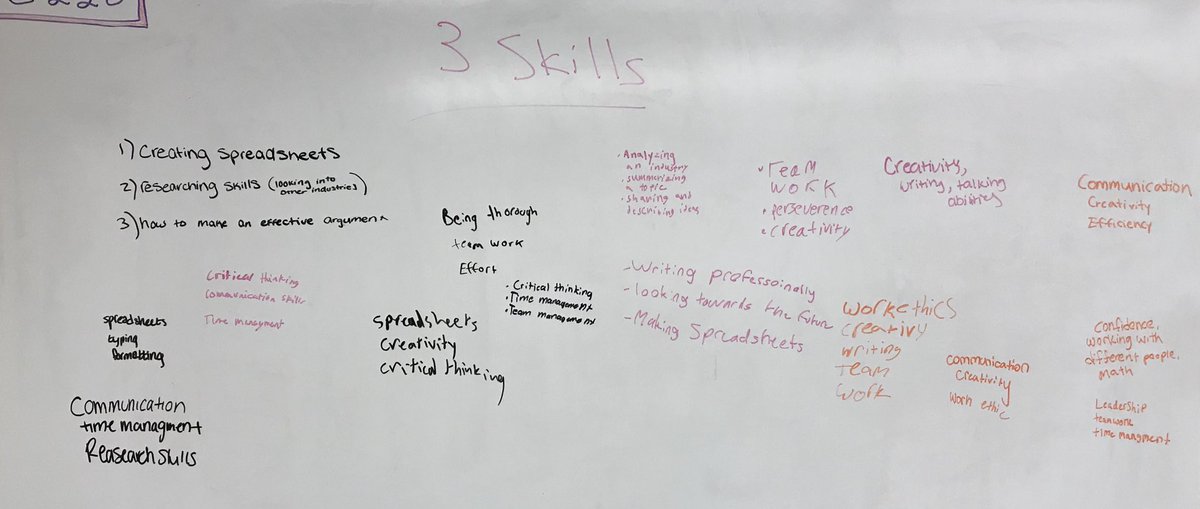 3 Skills
1) Creating Spreadsheets
2) researching skills (looking into
other industries)
3) how to make an effective argument
Being thorough
team work
Effort
• Analyzing
an industry
• summerizing
a topic
• sharing and
describing ideas
• Team
work
• perseverence
• creativity
Creativity,
writing, talking
abilities
Communication
Creativity
Efficiency
Critical thinking
Communication skills
Time managment
• Critical thinking
• Time management
• Team management
- Writing professoinally
- looking towards the future
- Making Spreadsheets
spreadsheets
typing
formatting
spreadsheets
creativity
critical thinking
work ethics
creativy
writing
team
work
communication
creativity
work ethic
Confidence,
working with
different people,
math
Communication
time managment
Reasearch skills
Leadership
teamwork
time managment